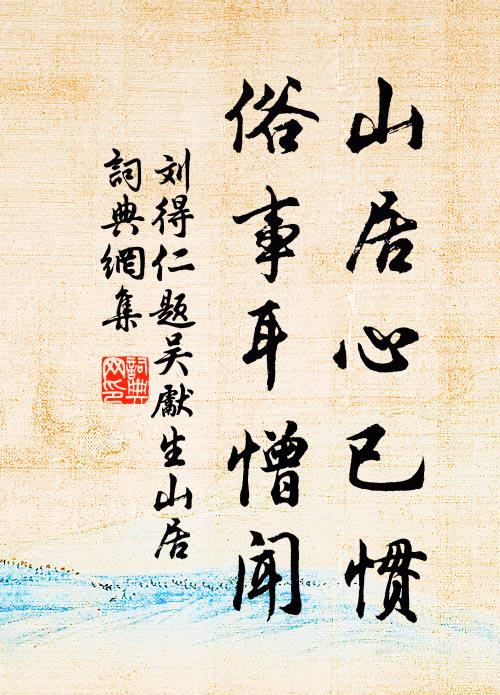 山居心已惯
俗事耳憎闻
刘得仁题吴獻生山居
詞典網集
詞典
网印